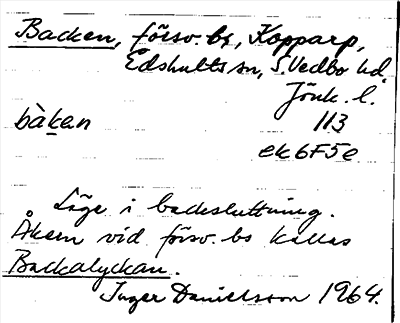 Backen, försv. bs, Kopparp,
Edshults sn, S. Vedbo hd,
Jönk. l.
bàken 113
ek6F5e
Läge i backsluttning.
Åkern vid försv. bs kallas
Backalyckan.
Inger Danielsson 1964.